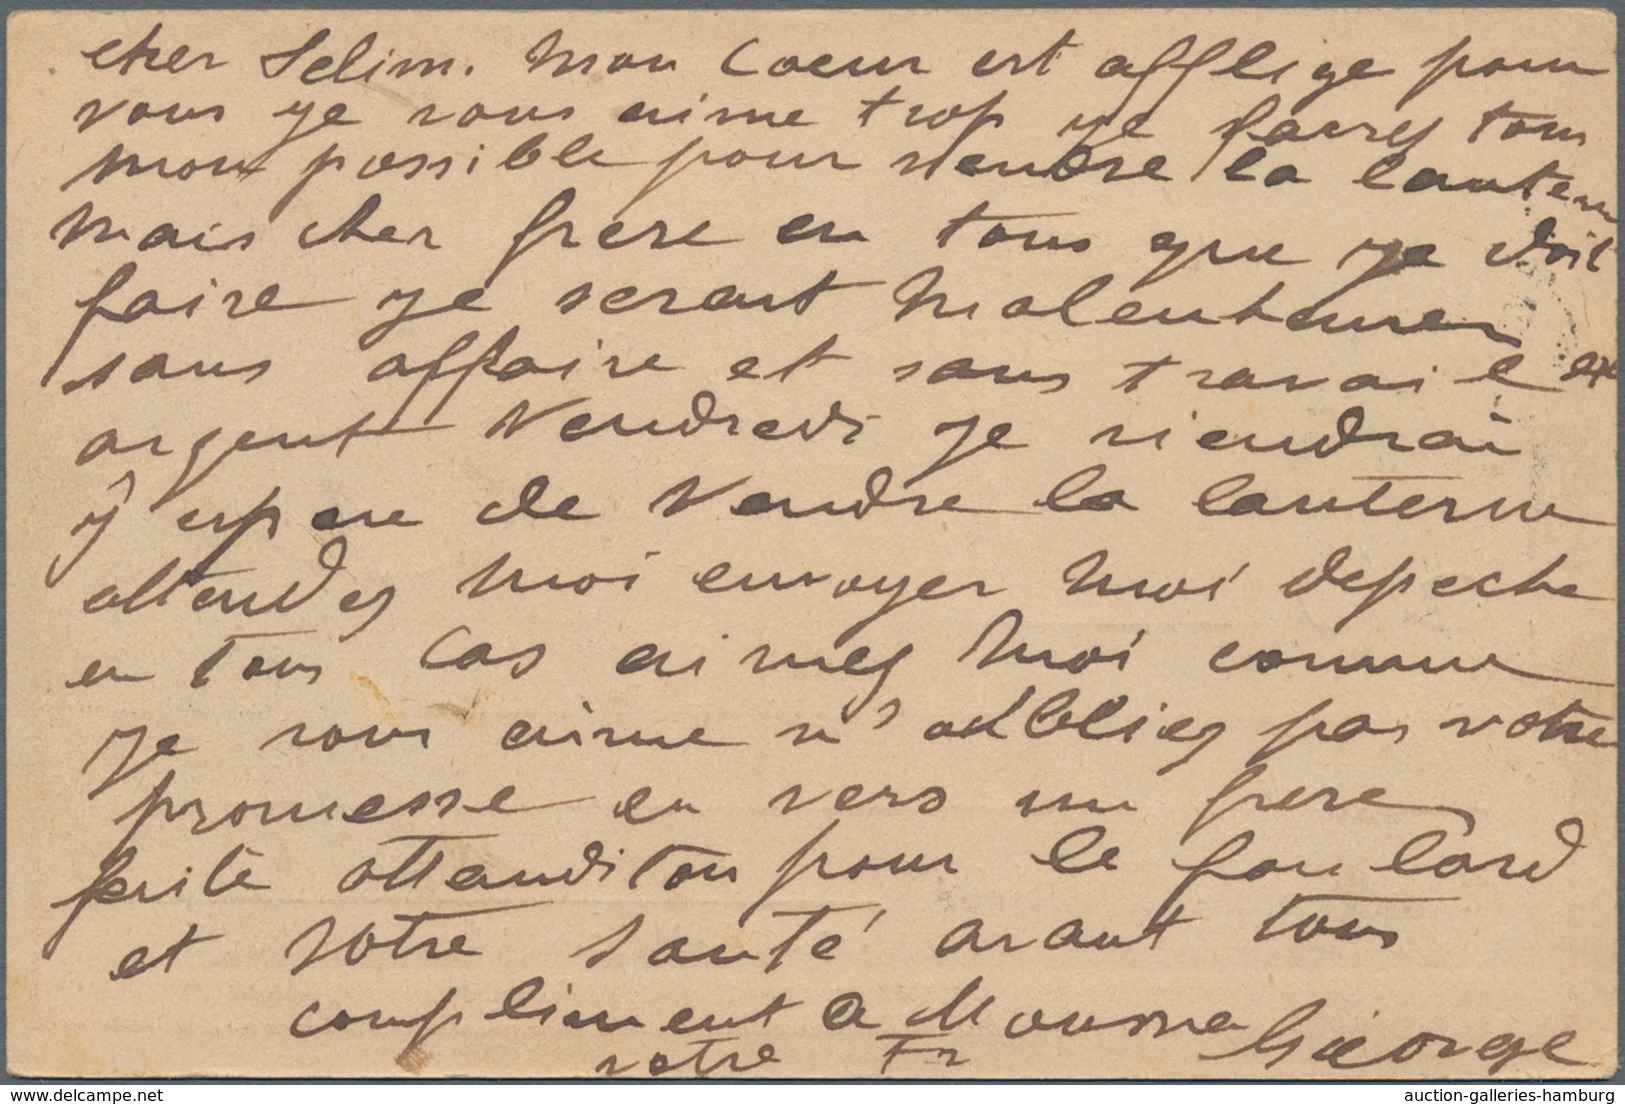 cher Selim. Mon coeur est afflige pour
vous je vous aime trop je fairez tous
mon possible pour vendre la lantern
mais cher frere en tous que je doit
faire je serait
sans affaire et sans travail
argent Vendredi je viendrai
j'espere de vendre la lanterne
attendez moi envoyer moi depeche
en tous cas aimez moi comme
je vous aime n' pas votre
promesse en vers un frere
attandi ton pour le foulard
et votre santé avant tous
compliment a Moussa
votre Fr George
auction-galleries-hamburg
www.delcampe.net